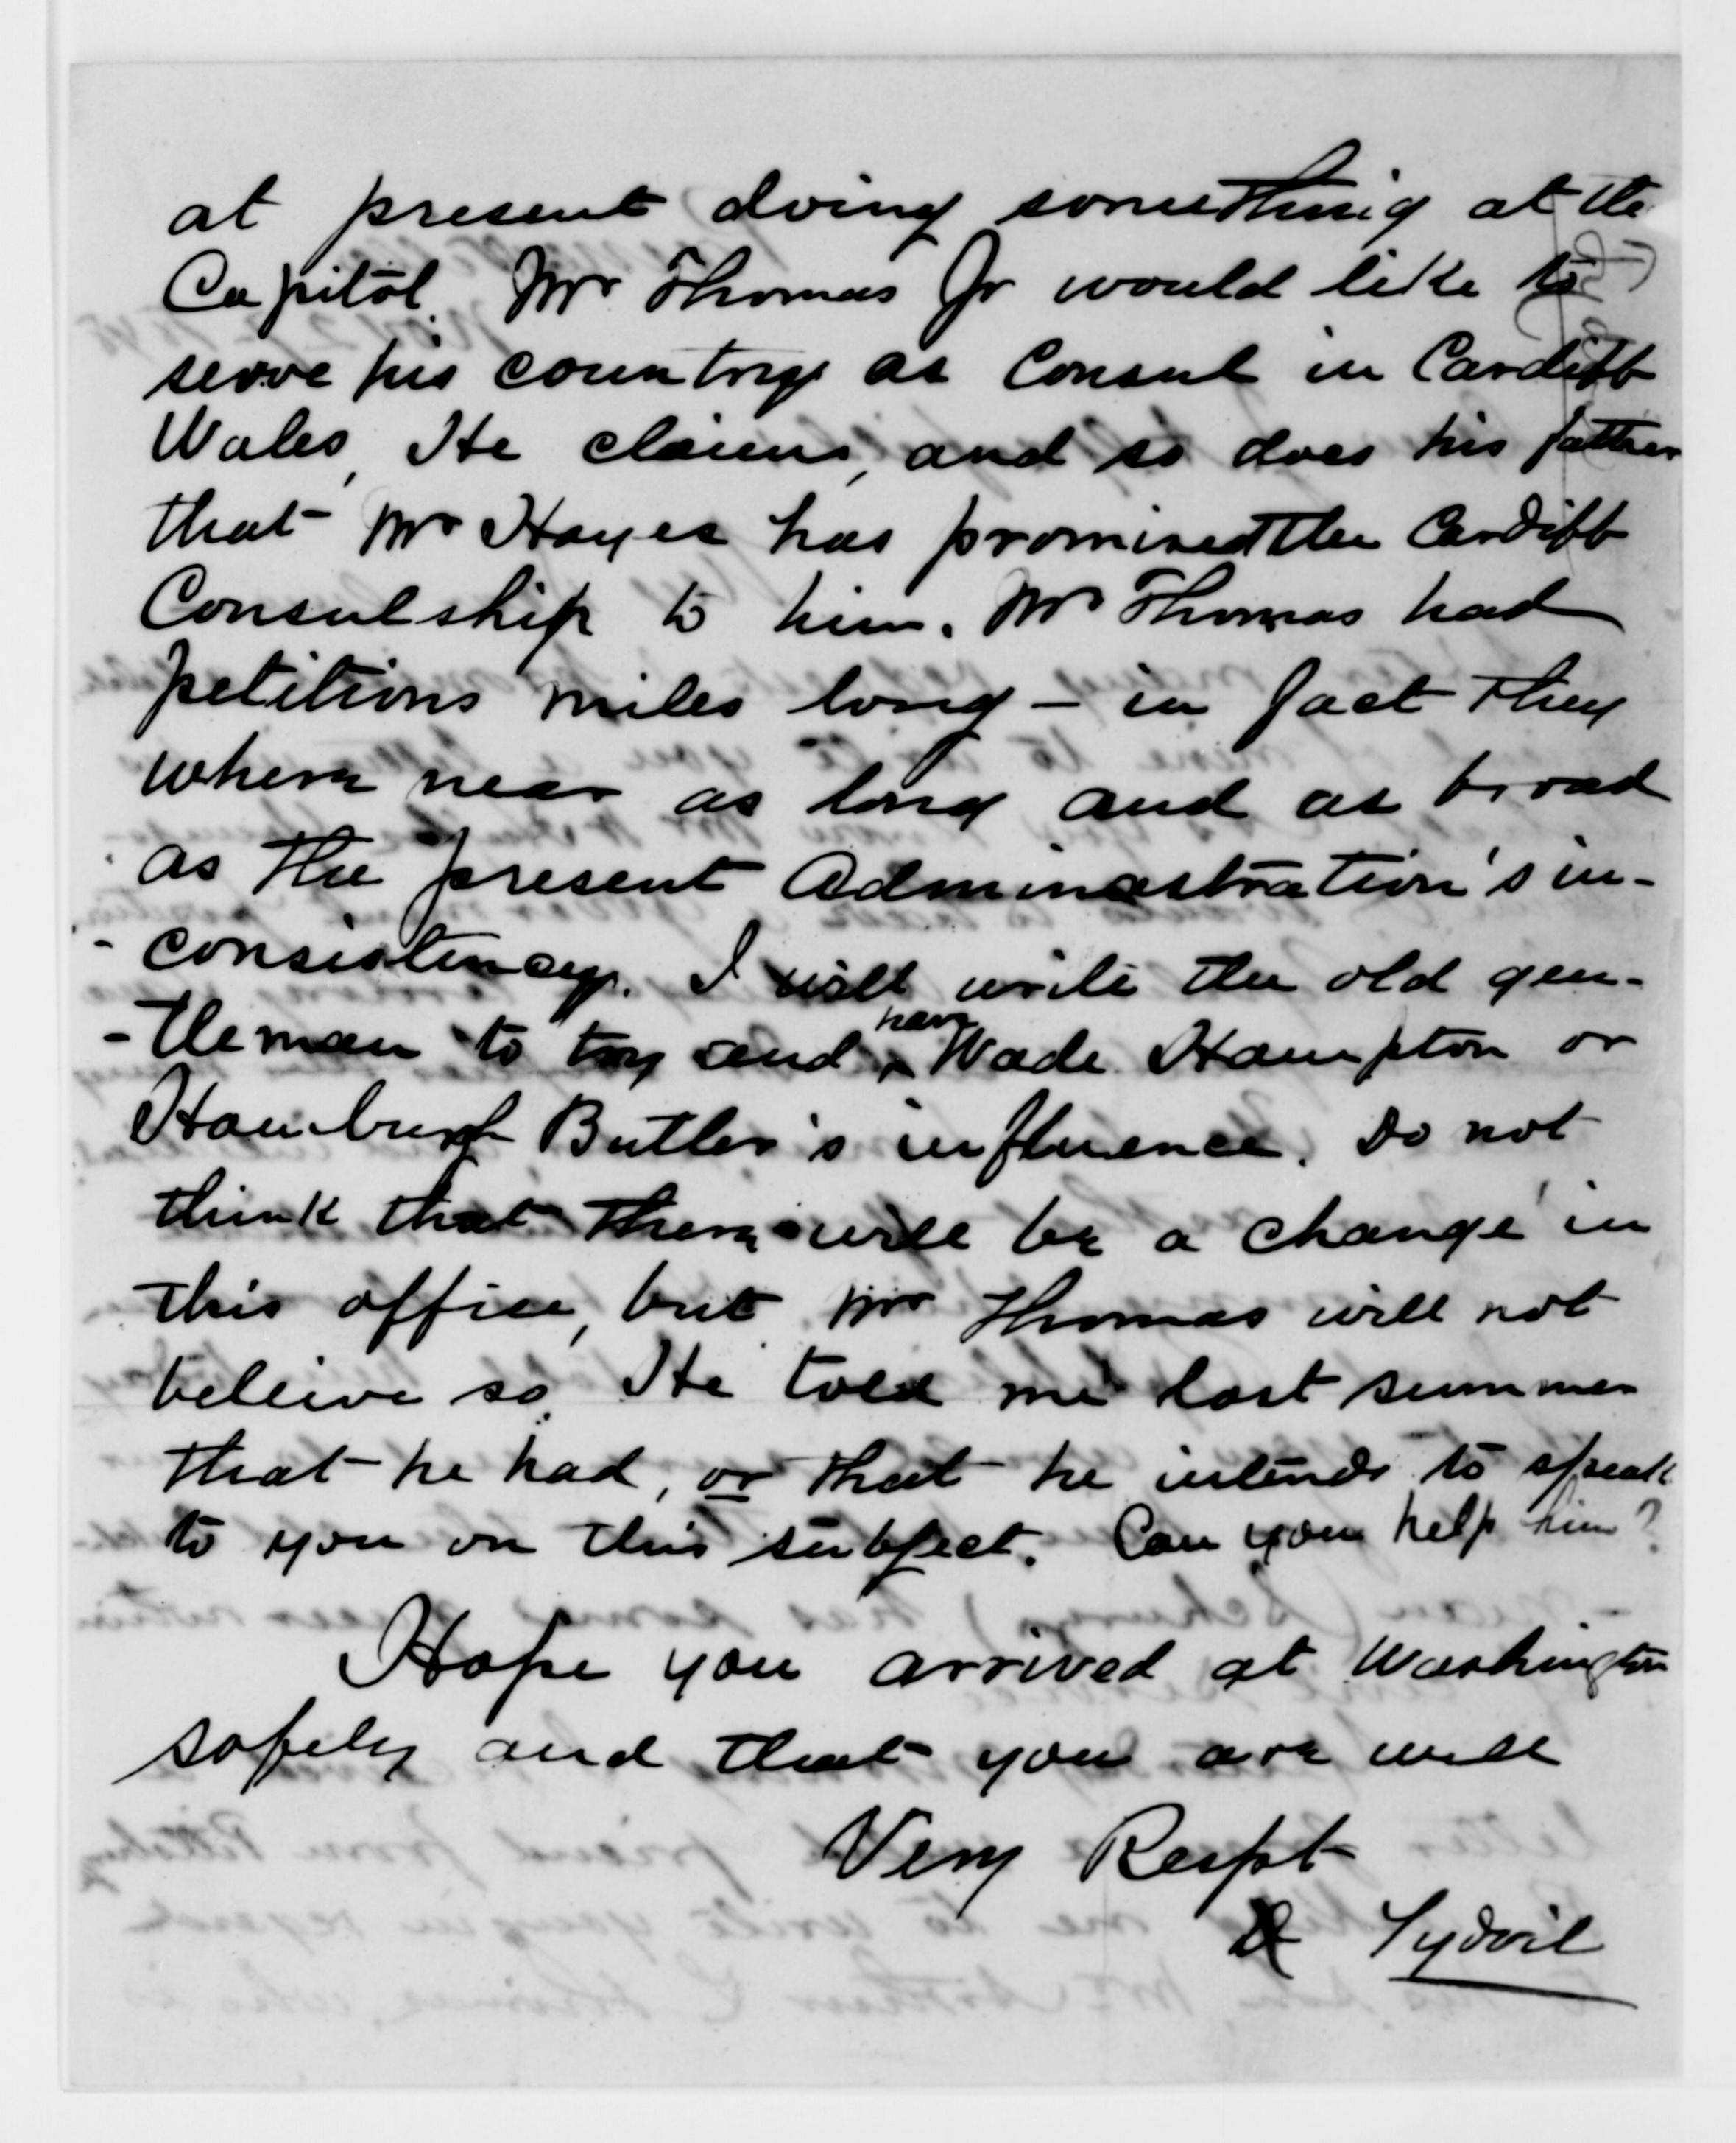 at present doing something at the
Capitol. Mr Thomas Jr would like to
serve his country as Consul in Cardiff
Wales, He claims, and so does his father
that Mr Hayes has promised the Cardiff
Consulship to him. Mr Thomas had
petitions miles long - in fact they
where near as long and as broad
as the present Administration's in-
- consistency. I will write the old gen-
- tleman to try and have Wade Hampton or
Hamburgh Butler's influence. Do not
think that there will be a change in
this office, but Mr Thomas will not
beleive so. He told me last summer
that he had, or that he intends to speak
to you on this subject. Can you help him?
Hope you arrived at Washington
safely and that you are well
Very Respt
Sydvil